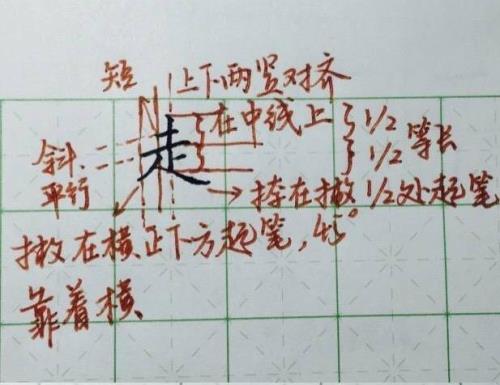 短 上下两竖对齐
走 在中线上 1/2 等长
斜 1/2
平行 捺在撇1/2处起笔
撇在横正下方起笔,45°
靠着横